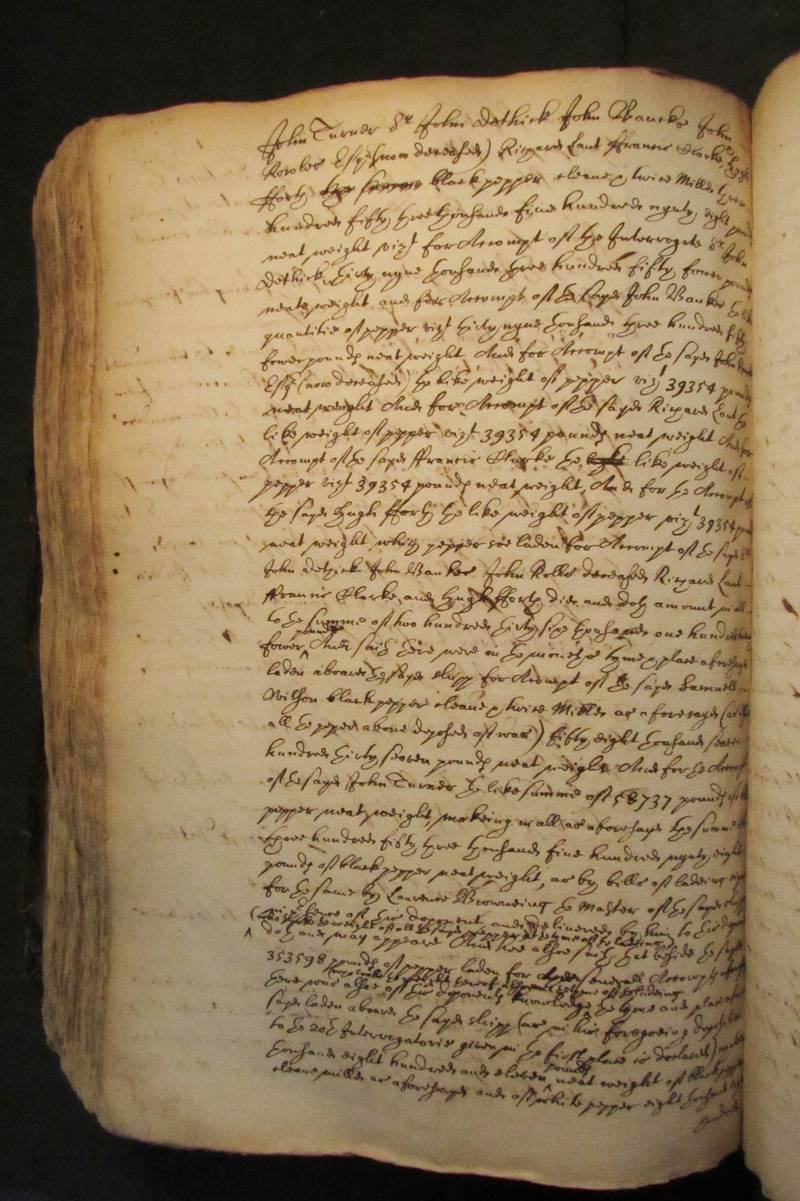 John Turner Sr John Dethick John Bancks John
Rowles Esqr (now deceased) Richard Lant ffrancis Clarke
fforth black pepper cleane & twice Milled three
hundred fifty three thousand fyve hundred nynty eight
neat weight vizt for Accompt of the Interrogate Sr John
Dethick thirty nyne thousand three hundred fifty fower pounds
neate weight and for Accompt of the sayd John Bankes the like
quantitie of pepper vizt thirty nyne thousand three hundred fifty
fower pounds neat weight And for Accompt of the sayd John
Esqr (now deceased) the like weight of pepper vizt 39354 pounds
neat weight And for Accompt of the sayd Richard Lant the
like weight of pepper vizt 39354 pounds neat weight And for
Accompt of the sayd ffrancis Clarke the like weight of
pepper vizt 39354 pounds neat weight, And for the Accompt of
the sayd Hugh fforth the like weight of pepper vizt 39354
neat weight which pepper soe laden for Accompt of the sayd Sr
John dethick John Banckes John Rolls deceased Richard Lant
ffrancis Clarke and Hugh fforth did and doth amount in all
to the summe of two hundred thirty six thousand one hundred
fower pounds And saith there were in the time & place aforesayd
laden aboard the sayd shipp for Accompt of the sayd Samuell
Wilson black pepper cleane & twice Milled as aforesayd (as
all the peper above deposed of was) fifty eight thousand seven
hundred thirty seaven pounds neat weight And for the Accompt
of the sayd John Turner the like summe of 58737 pounds of
pepper neat weight, makeing in all as aforesayd the summe
three hundred fifty three thousand five hundred nynty eight
pounds of black pepper neat weight, as by bills of ladeing
for the same by Laurence Browneing the Master of the sayd shipp
of this deponent and delivered by him to
doth and may appeare And hee alsoe saith that beside the sayd
353598 pounds of pepper laden for severall Accompts
there was alsoe of this deponents knowledge the tyme and place
sayd laden aboard the sayd shipp (as in his foregoeing deposition
to the 20th Interrogatorie given in the first place is declared)
thousand eight hundred and eleven pounds neat weight of black pepper
cleane milled as aforesayd and of white pepper eight thousand
hundred